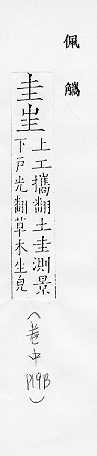 佩觿
圭㞷
上工攜翻土圭測景
下戶光翻草木生皃
(卷中 P19B)